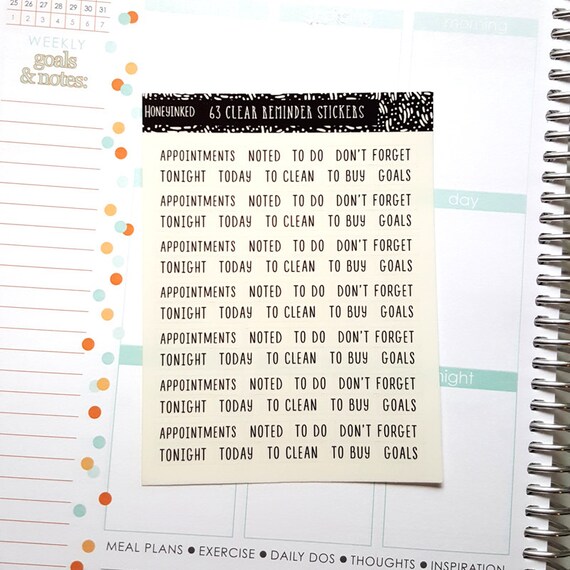 25 26 27 28 29 30 31
WEEKLY
goals
& notes:
morning
HONEYINKED 63 CLEAR REMINDER STICKERS
APPOINTMENTS NOTED TO DO DON'T FORGET
TONIGHT TODAY TO CLEAN TO BUY GOALS
APPOINTMENTS NOTED TO DO DON'T FORGET
TONIGHT TODAY TO CLEAN TO BUY GOALS
APPOINTMENTS NOTED TO DO DON'T FORGET
TONIGHT TODAY TO CLEAN TO BUY GOALS
APPOINTMENTS NOTED TO DO DON'T FORGET
TONIGHT TODAY TO CLEAN TO BUY GOALS
APPOINTMENTS NOTED TO DO DON'T FORGET
TONIGHT TODAY TO CLEAN TO BUY GOALS
APPOINTMENTS NOTED TO DO DON'T FORGET
TONIGHT TODAY TO CLEAN TO BUY GOALS
APPOINTMENTS NOTED TO DO DON'T FORGET
TONIGHT TODAY TO CLEAN TO BUY GOALS
day
night
MEAL PLANS • EXERCISE • DAILY DOS • THOUGHTS • INSPIRATION